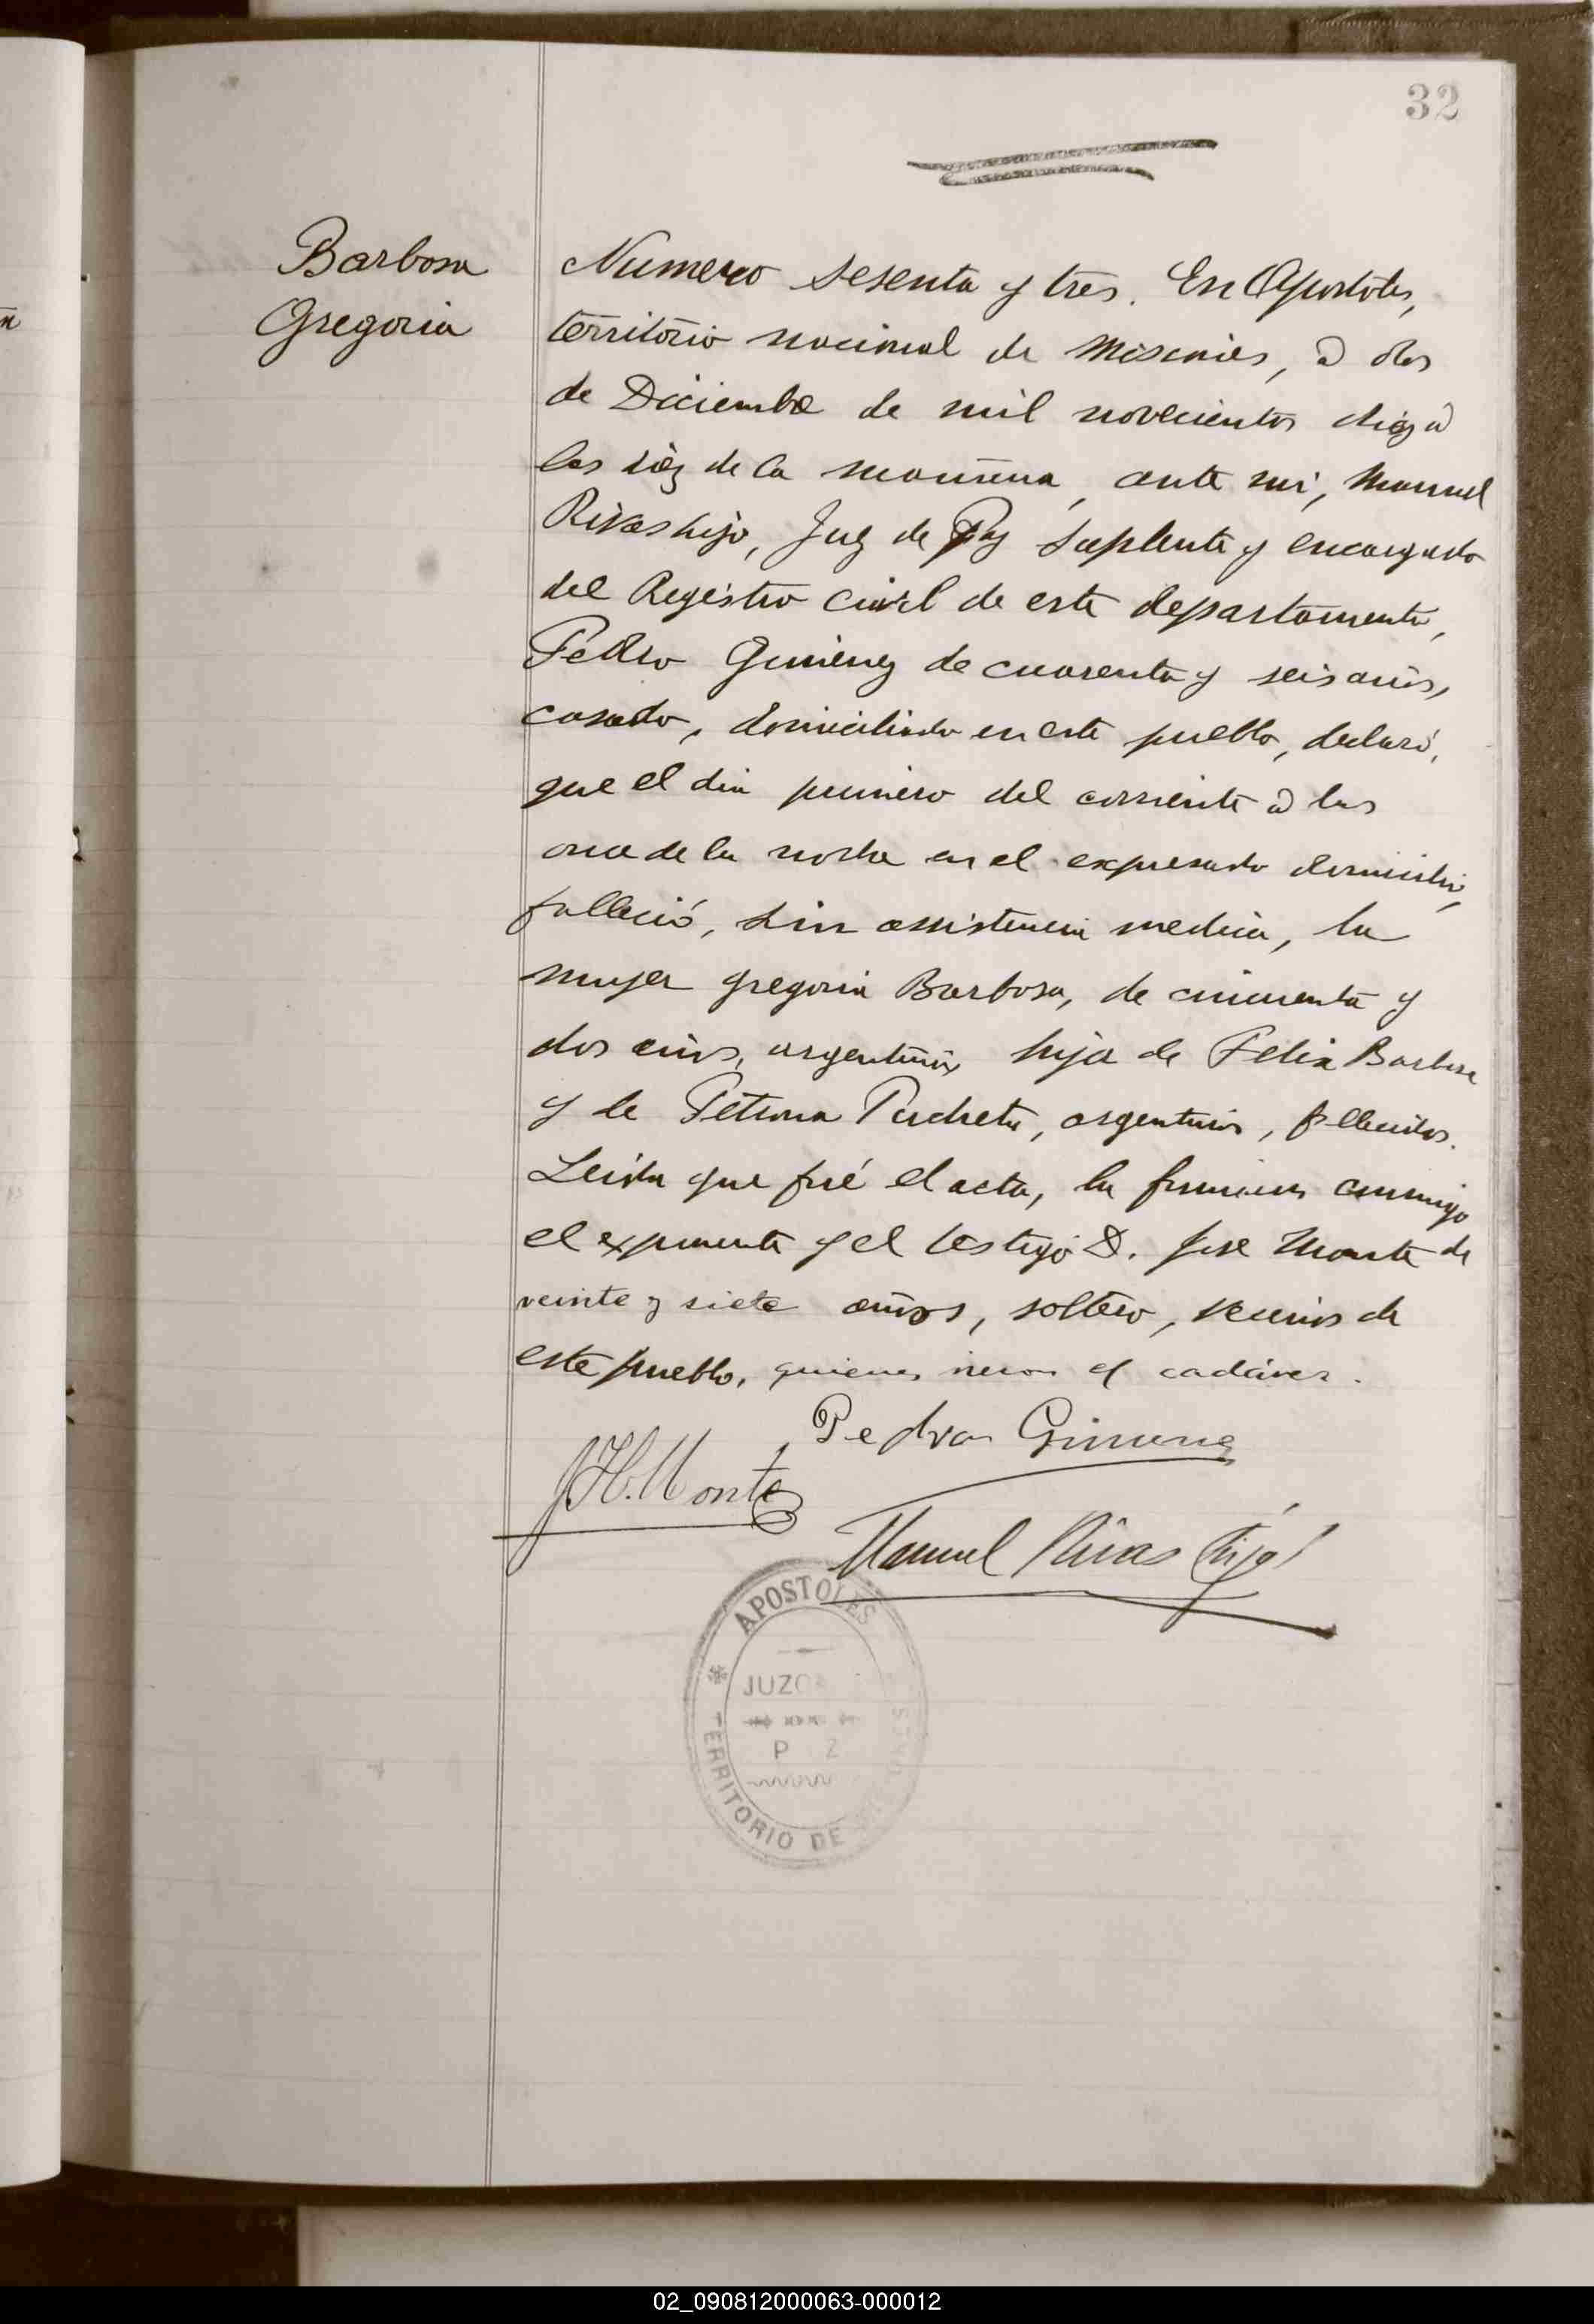 32
Barbosa
Gregoria
Numero sesenta y tres. En Apostoles,
territorio nacional de Misiones, à dos
de Diciembre de mil novecientos diez à
las diez de la mañana, ante mi, Manuel
Rivas hijo, Juez de Paz Suplente y encargado
del Registro civil de este departamento,
Pedro Gimenez de cuarenta y seis años,
casado, domiciliado en este pueblo, declaró,
que el dia primero del corriente à las
once de la noche en el expresado domicilio,
falleció, sin assistencia medica, la
mujer Gregoria Barbosa, de cincuenta y
dos años, argentina, hija de Felix Barbosa
y de Petrona argentinos, fallecidos.
Leida que fué el acta, la firmaron conmigo
el exponente y el testigo D. José Monte de
veinte y siete años, soltero, vecinos de
este pueblo, quienes vieron el cadáver.
Pedro Gimenez
J.H. Monte
Manuel Rivas hijo
APOSTOLES
JUZG
P Z
TERRITORIO DE
02_090812000063-000012